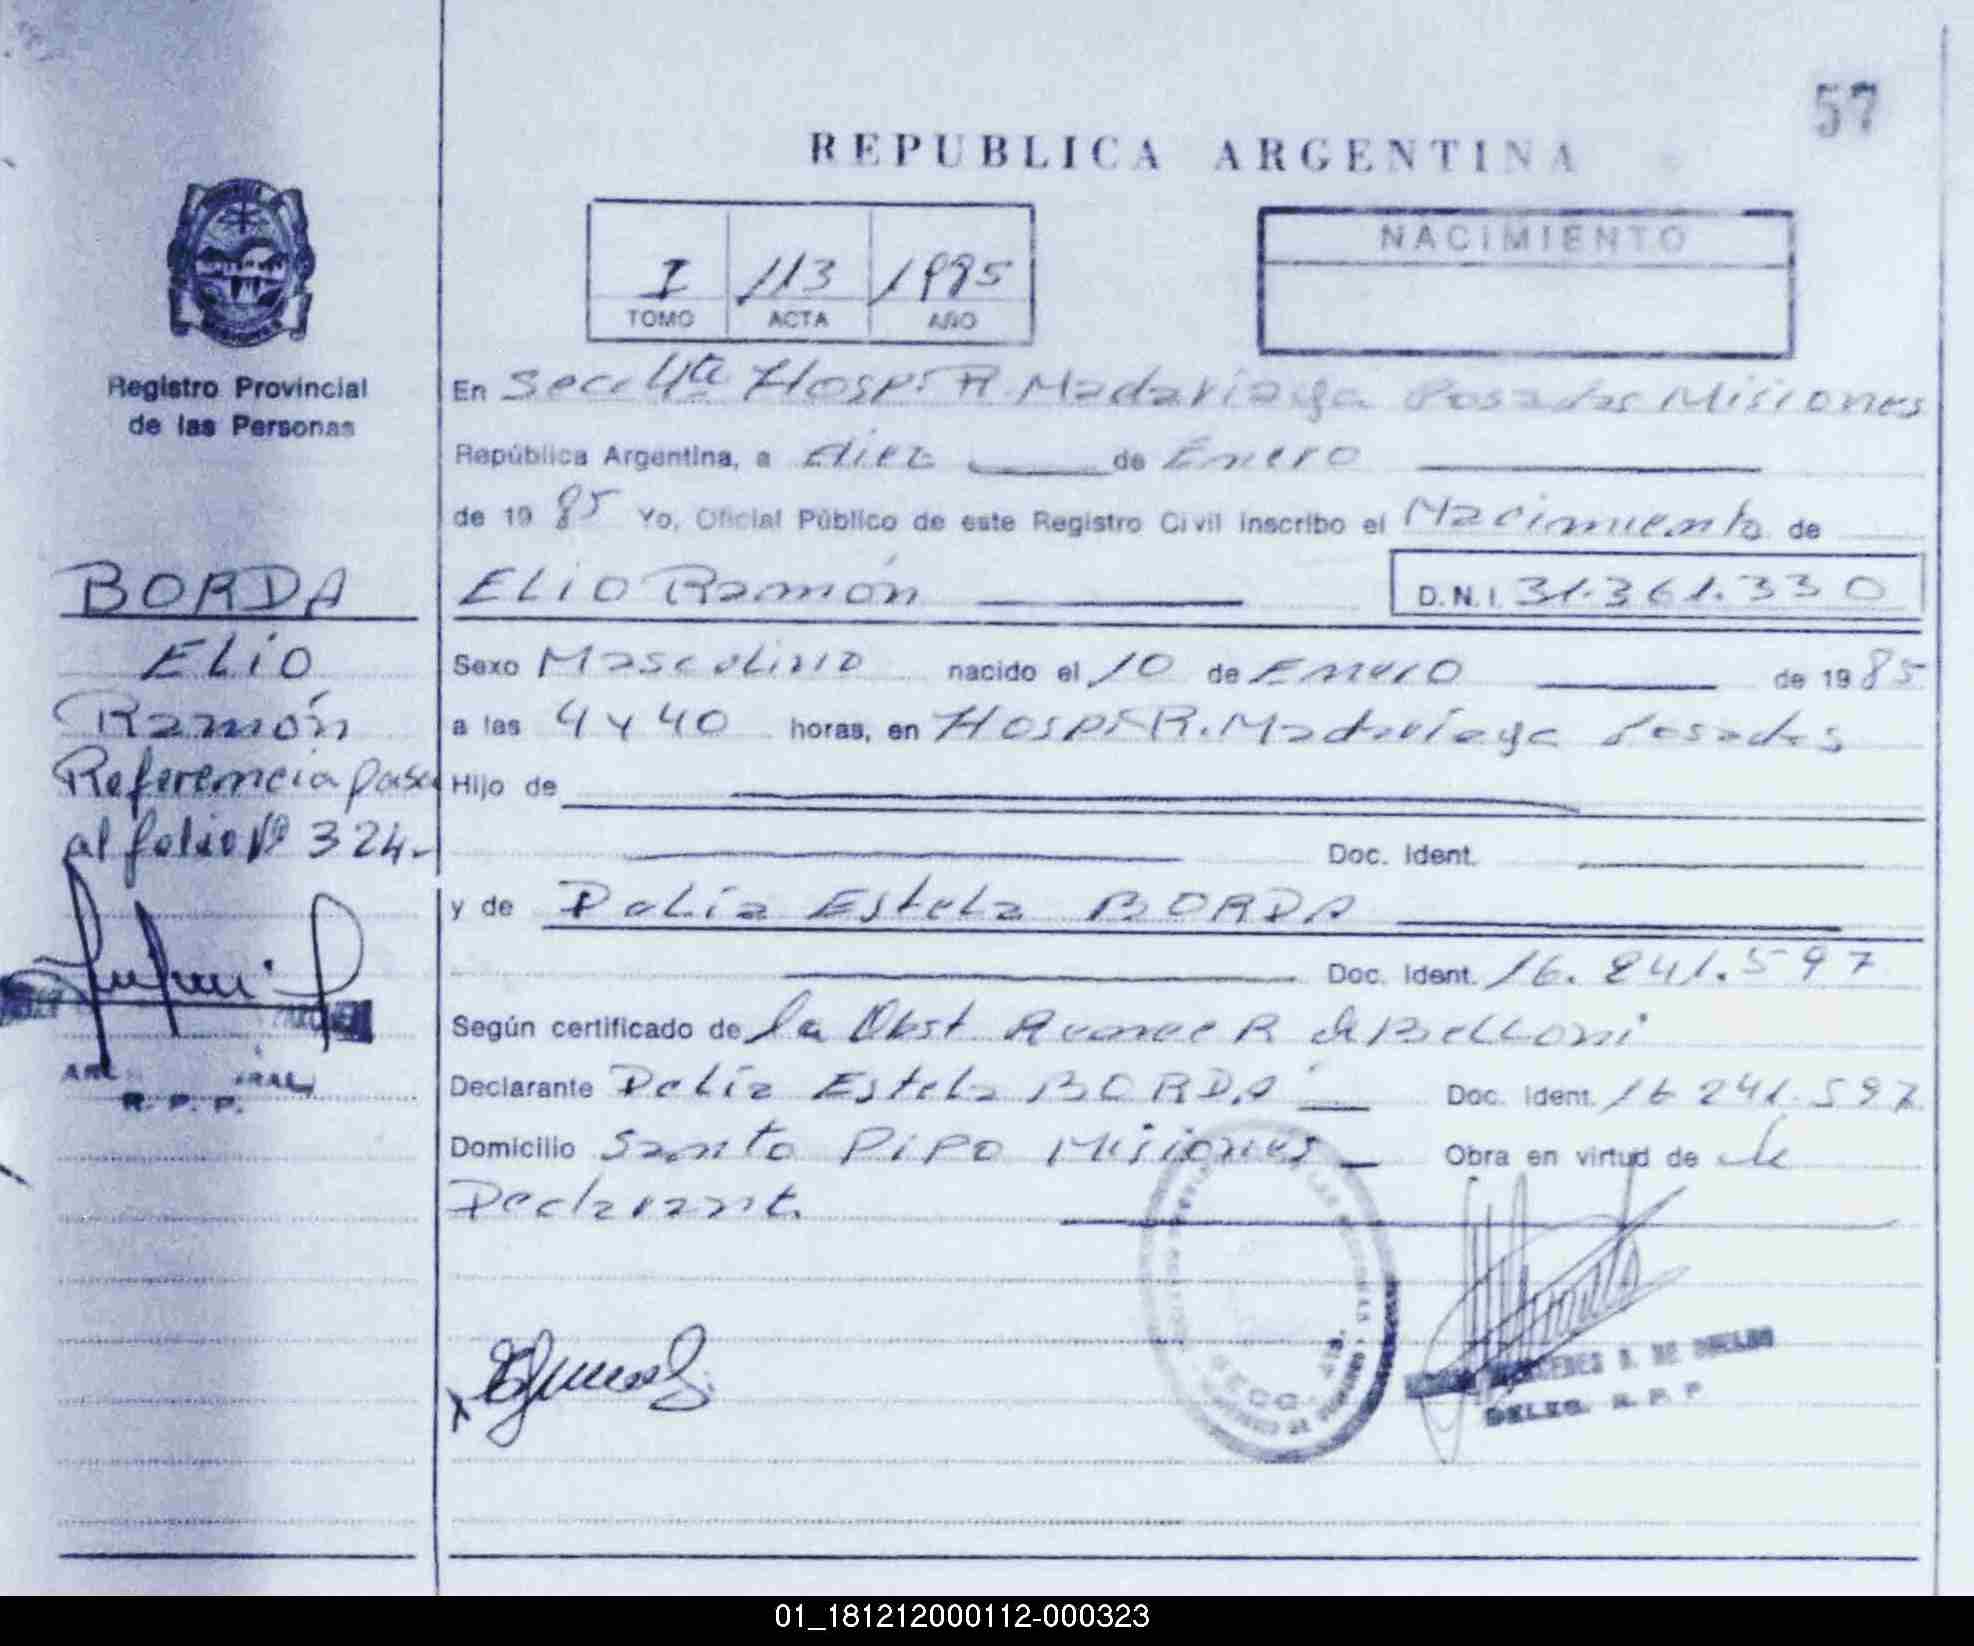 57
REPUBLICA ARGENTINA
NACIMIENTO
I 113 1985
TOMO ACTA AÑO
Registro Provincial
de las Personas
En Secc 4ta Hosp. R. Madariaga Posadas Misiones
República Argentina, a diez de Enero
de 19 85 Yo, Oficial Público de este Registro Civil inscribo el Nacimiento de
BORDA
ELIO Ramón D.N.I. 31.361.330
ELIO
Ramón
Referencia pasa
al folio Nº 324.-
Sexo Masculino nacido el 10 de Enero de 19 85
a las 4 y 40 horas, en Hosp. R. Madariaga Posadas
Hijo de
Doc. Ident.
y de Delia Estela BORDA
Doc. Ident. 16.241.597
Según certificado de la Obst R de Belloni
Declarante Delia Estela BORDA Doc. Ident. 16 241.597
Domicilio Santo Pipo Misiones Obra en virtud de
Declarant.
R. P. P.
SECC. 4ta.
DE
DELEG. R. P. P
01_181212000112-000323